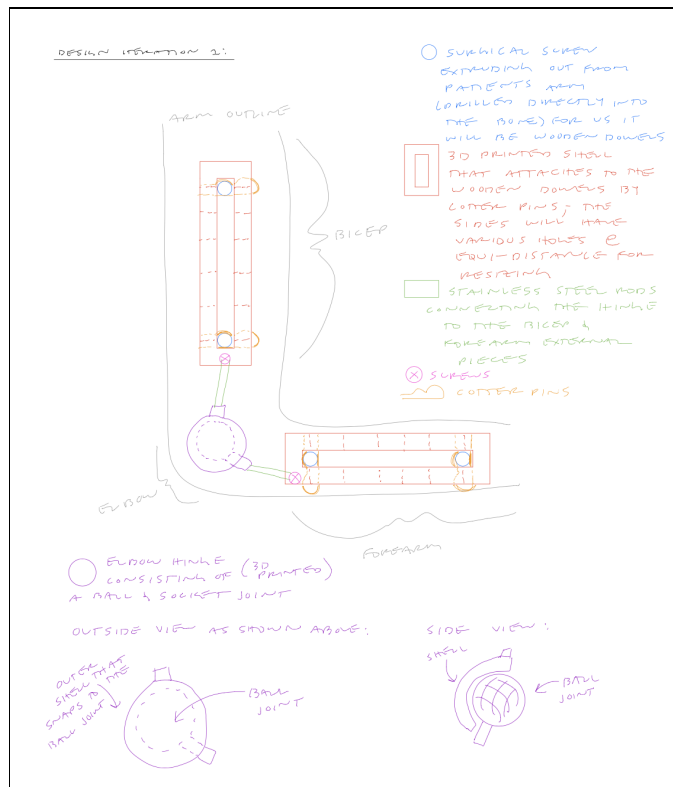 DESIGN ITERATION 1:
SURGICAL SCREW
EXTRUDING OUT FROM
PATIENTS ARM
(DRILLED DIRECTLY INTO
THE BONE) FOR US IT
WILL BE WOODEN DOWELS
ARM OUTLINE
3D PRINTED SHELL
THAT ATTACHES TO THE
WOODEN DOWELS BY
COTTER PINS; THE
SIDES WILL HAVE
VARIOUS HOLES @
EQUI-DISTANCE FOR
RESIZING
BICEP
STAINLESS STEEL RODS
CONNECTING THE HINGE
TO THE BICEP &
FOREARM EXTERNAL
PIECES
SCREWS
COTTER PINS
ELBOW
FOREARM
ELBOW HINGE
CONSISTING OF (3D PRINTED)
A BALL & SOCKET JOINT
OUTSIDE VIEW AS SHOWN ABOVE:
SIDE VIEW:
OUTER
SHELL THAT
SNAPS TO THE
BALL JOINT
BALL
JOINT
SHELL
BALL
JOINT